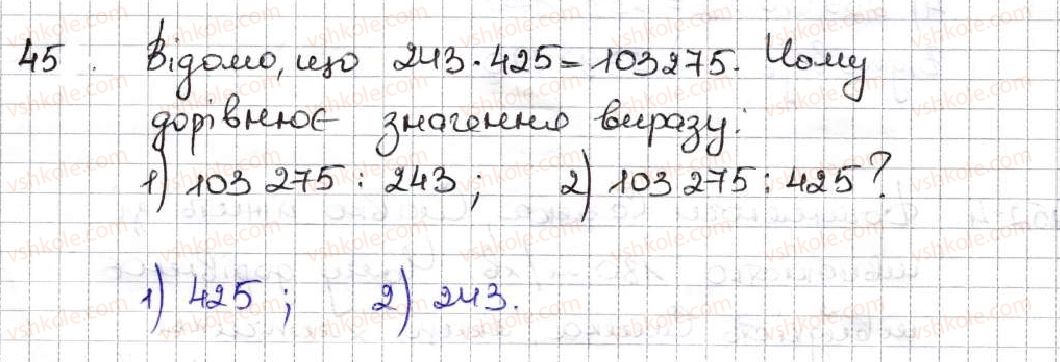 45. Відомо, що 243·425=103275. Чому
дорівнює значення виразу:
1) 103 275 : 243; 2) 103 275 : 425?
1) 425; 2) 243.